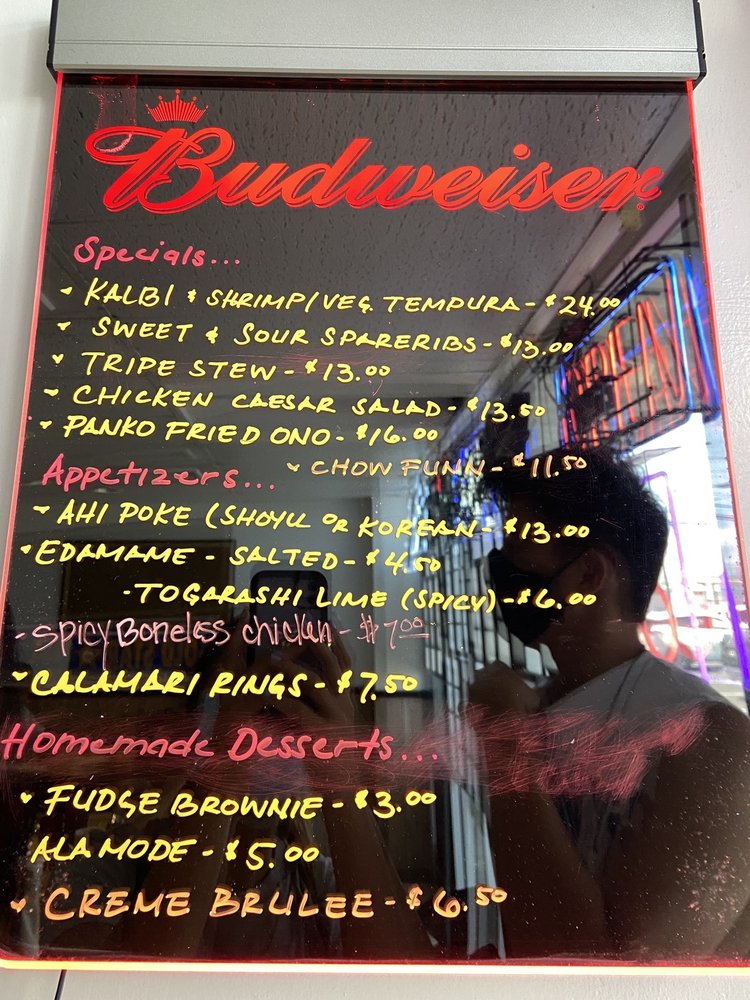 Budweiser
Specials...
KALBI & SHRIMP/VEG. TEMPURA - $24.00
SWEET & SOUR SPARERIBS - $13.00
TRIPE STEW - $13.00
CHICKEN CAESAR SALAD - $13.50
PANKO FRIED ONO - $16.00
CHOW FUNN - $11.50
Appetizers...
AHI POKE (SHOYU OR KOREAN - $13.00
EDAMAME - SALTED - $4.50
- TOGARASHI LIME (SPICY) - $6.00
- Spicy Boneless chicken - $7.00
CALAMARI RINGS - $7.50
Homemade Desserts...
FUDGE BROWNIE - $3.00
ALA MODE - $5.00
CREME BRULEE - $6.50